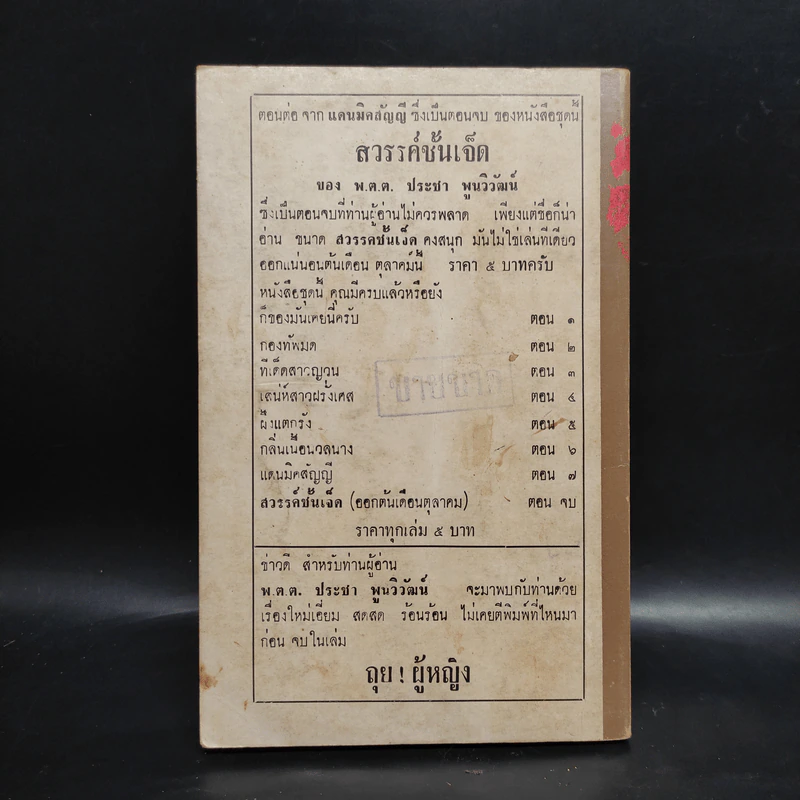 ตอนต่อ จาก แดนมิคสัญญี ซึ่งเป็นตอนจบ ของหนังสือชุดนี้
สวรรค์ชั้นเจ็ด
ของ พ.ต.ต. ประชา พูนวิวัฒน์
ซึ่งเป็นตอนจบที่ท่านผู้อ่านไม่ควรพลาด เพียงแต่ชื่อก็น่า
อ่าน ขนาด สวรรค์ชั้นเจ็ด คงสนุก มันไม่ใช่เล่นทีเดียว
ออกแน่นอนต้นเดือน ตุลาคมนี้ ราคา ๕ บาทครับ
หนังสือชุดนี้ คุณมีครบแล้วหรือยัง
ก็ของมันเคยนี่ครับ ตอน ๑
กองทัพมด ตอน ๒
ทีเด็ดสาวญวน ตอน ๓
เสน่ห์สาวฝรั่งเศส ตอน ๔
ผึ้งแตกรัง ตอน ๕
กลิ่นเนื้อนวลนาง ตอน ๖
แดนมิคสัญญี ตอน ๗
สวรรค์ชั้นเจ็ด (ออกต้นเดือนตุลาคม) ตอน จบ
ราคาทุกเล่ม ๕ บาท
ขายขาด
ข่าวดี สำหรับท่านผู้อ่าน
พ.ต.ต. ประชา พูนวิวัฒน์ จะมาพบกับท่านด้วย
เรื่องใหม่เอี่ยม สดสด ร้อนร้อน ไม่เคยตีพิมพ์ที่ไหนมา
ก่อน จบในเล่ม
ถุย ! ผู้หญิง